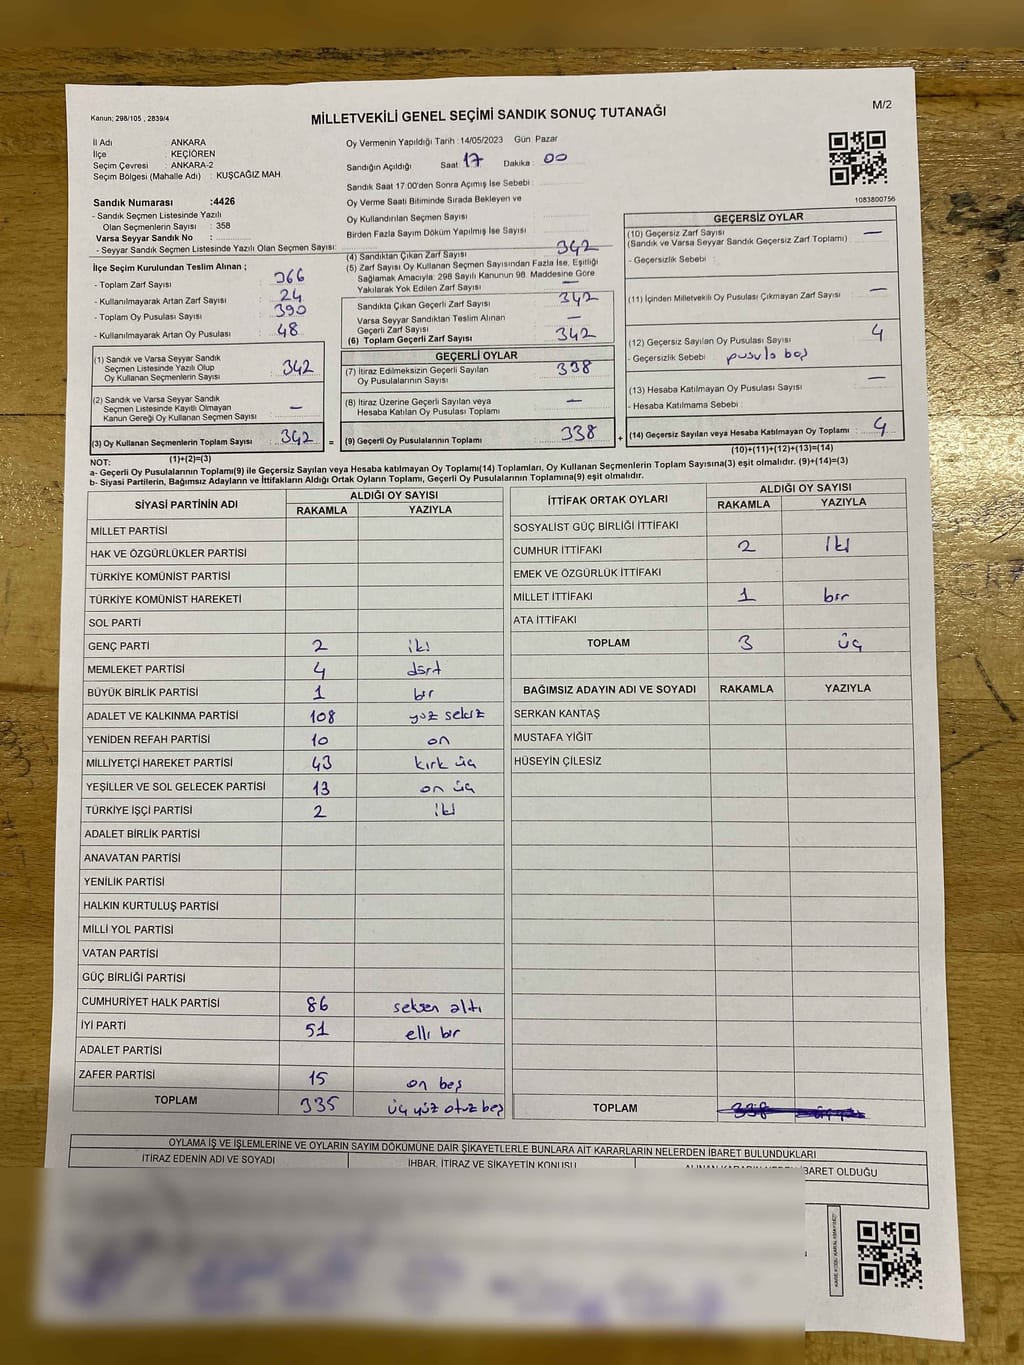 Kanun; 298/105 , 2839/4
MİLLETVEKİLİ GENEL SEÇİMİ SANDIK SONUÇ TUTANAĞI
M/2
İl Adı : ANKARA
İlçe : KEÇİÖREN
Seçim Çevresi : ANKARA-2
Seçim Bölgesi (Mahalle Adı) : KUŞCAĞIZ MAH.
Sandık Numarası :4426
- Sandık Seçmen Listesinde Yazılı
Olan Seçmenlerin Sayısı : 358
Varsa Seyyar Sandık No :
- Seyyar Sandık Seçmen Listesinde Yazılı Olan Seçmen Sayısı:
Oy Vermenin Yapıldığı Tarih : 14/05/2023 Gün: Pazar
Sandığın Açıldığı Saat: 17 Dakika : 00
Sandık Saat 17:00'den Sonra Açımış İse Sebebi :
Oy Verme Saati Bitiminde Sırada Bekleyen ve
Oy Kullandırılan Seçmen Sayısı :
Birden Fazla Sayım Döküm Yapılmış İse Sayısı :
1083800756
İlçe Seçim Kurulundan Teslim Alınan ;
- Toplam Zarf Sayısı : 366
- Kullanılmayarak Artan Zarf Sayısı : 24
- Toplam Oy Pusulası Sayısı : 390
- Kullanılmayarak Artan Oy Pusulası : 48
(1) Sandık ve Varsa Seyyar Sandık
Seçmen Listesinde Yazılı Olup
Oy Kullanan Seçmenlerin Sayısı : 342
(2) Sandık ve Varsa Seyyar Sandık
Seçmen Listesinde Kayıtlı Olmayan
Kanun Gereği Oy Kullanan Seçmen Sayısı : —
(3) Oy Kullanan Seçmenlerin Toplam Sayısı : 342 =
(1)+(2)=(3)
(4) Sandıktan Çıkan Zarf Sayısı : 342
(5) Zarf Sayısı Oy Kullanan Seçmen Sayısından Fazla İse, Eşitliği
Sağlamak Amacıyla; 298 Sayılı Kanunun 98. Maddesine Göre
Yakılarak Yok Edilen Zarf Sayısı : —
Sandıkta Çıkan Geçerli Zarf Sayısı : 342
Varsa Seyyar Sandıktan Teslim Alınan
Geçerli Zarf Sayısı : —
(6) Toplam Geçerli Zarf Sayısı : 342
GEÇERLİ OYLAR
(7) İtiraz Edilmeksizin Geçerli Sayılan
Oy Pusulalarının Sayısı : 338
(8) İtiraz Üzerine Geçerli Sayılan veya
Hesaba Katılan Oy Pusulası Toplamı : —
(9) Geçerli Oy Pusulalarının Toplamı : 338 +
GEÇERSİZ OYLAR
(10) Geçersiz Zarf Sayısı
(Sandık ve Varsa Seyyar Sandık Geçersiz Zarf Toplamı) : —
- Geçersizlik Sebebi :
(11) İçinden Milletvekili Oy Pusulası Çıkmayan Zarf Sayısı : —
(12) Geçersiz Sayılan Oy Pusulası Sayısı : 4
- Geçersizlik Sebebi : pusula boş
(13) Hesaba Katılmayan Oy Pusulası Sayısı : —
- Hesaba Katılmama Sebebi :
(14) Geçersiz Sayılan veya Hesaba Katılmayan Oy Toplamı : 4
(10)+(11)+(12)+(13)=(14)
NOT:
a- Geçerli Oy Pusulalarının Toplamı(9) ile Geçersiz Sayılan veya Hesaba katılmayan Oy Toplamı(14) Toplamları, Oy Kullanan Seçmenlerin Toplam Sayısına(3) eşit olmalıdır. (9)+(14)=(3)
b- Siyasi Partilerin, Bağımsız Adayların ve İttifakların Aldığı Ortak Oyların Toplamı, Geçerli Oy Pusulalarının Toplamına(9) eşit olmalıdır.
SİYASİ PARTİNİN ADI ALDIĞI OY SAYISI
RAKAMLA YAZIYLA
MİLLET PARTİSİ
HAK VE ÖZGÜRLÜKLER PARTİSİ
TÜRKİYE KOMÜNİST PARTİSİ
TÜRKİYE KOMÜNİST HAREKETİ
SOL PARTİ
GENÇ PARTİ 2 iki
MEMLEKET PARTİSİ 4 dört
BÜYÜK BİRLİK PARTİSİ 1 bir
ADALET VE KALKINMA PARTİSİ 108 yüz sekiz
YENİDEN REFAH PARTİSİ 10 on
MİLLİYETÇİ HAREKET PARTİSİ 43 kırk üç
YEŞİLLER VE SOL GELECEK PARTİSİ 13 on üç
TÜRKİYE İŞÇİ PARTİSİ 2 iki
ADALET BİRLİK PARTİSİ
ANAVATAN PARTİSİ
YENİLİK PARTİSİ
HALKIN KURTULUŞ PARTİSİ
MİLLİ YOL PARTİSİ
VATAN PARTİSİ
GÜÇ BİRLİĞİ PARTİSİ
CUMHURİYET HALK PARTİSİ 86 seksen altı
İYİ PARTİ 51 elli bir
ADALET PARTİSİ
ZAFER PARTİSİ 15 on beş
TOPLAM 335 üç yüz otuz beş
İTTİFAK ORTAK OYLARI ALDIĞI OY SAYISI
RAKAMLA YAZIYLA
SOSYALİST GÜÇ BİRLİĞİ İTTİFAKI
CUMHUR İTTİFAKI 2 iki
EMEK VE ÖZGÜRLÜK İTTİFAKI
MİLLET İTTİFAKI 1 bir
ATA İTTİFAKI
TOPLAM 3 üç
BAĞIMSIZ ADAYIN ADI VE SOYADI RAKAMLA YAZIYLA
SERKAN KANTAŞ
MUSTAFA YİĞİT
HÜSEYİN ÇİLESİZ
TOPLAM 338
OYLAMA İŞ VE İŞLEMLERİNE VE OYLARIN SAYIM DÖKÜMÜNE DAİR ŞİKAYETLERLE BUNLARA AİT KARARLARIN NELERDEN İBARET BULUNDUKLARI
İTİRAZ EDENİN ADI VE SOYADI İHBAR, İTİRAZ VE ŞİKAYETİN KONUSU ALINAN KARARIN NEDEN İBARET OLDUĞU